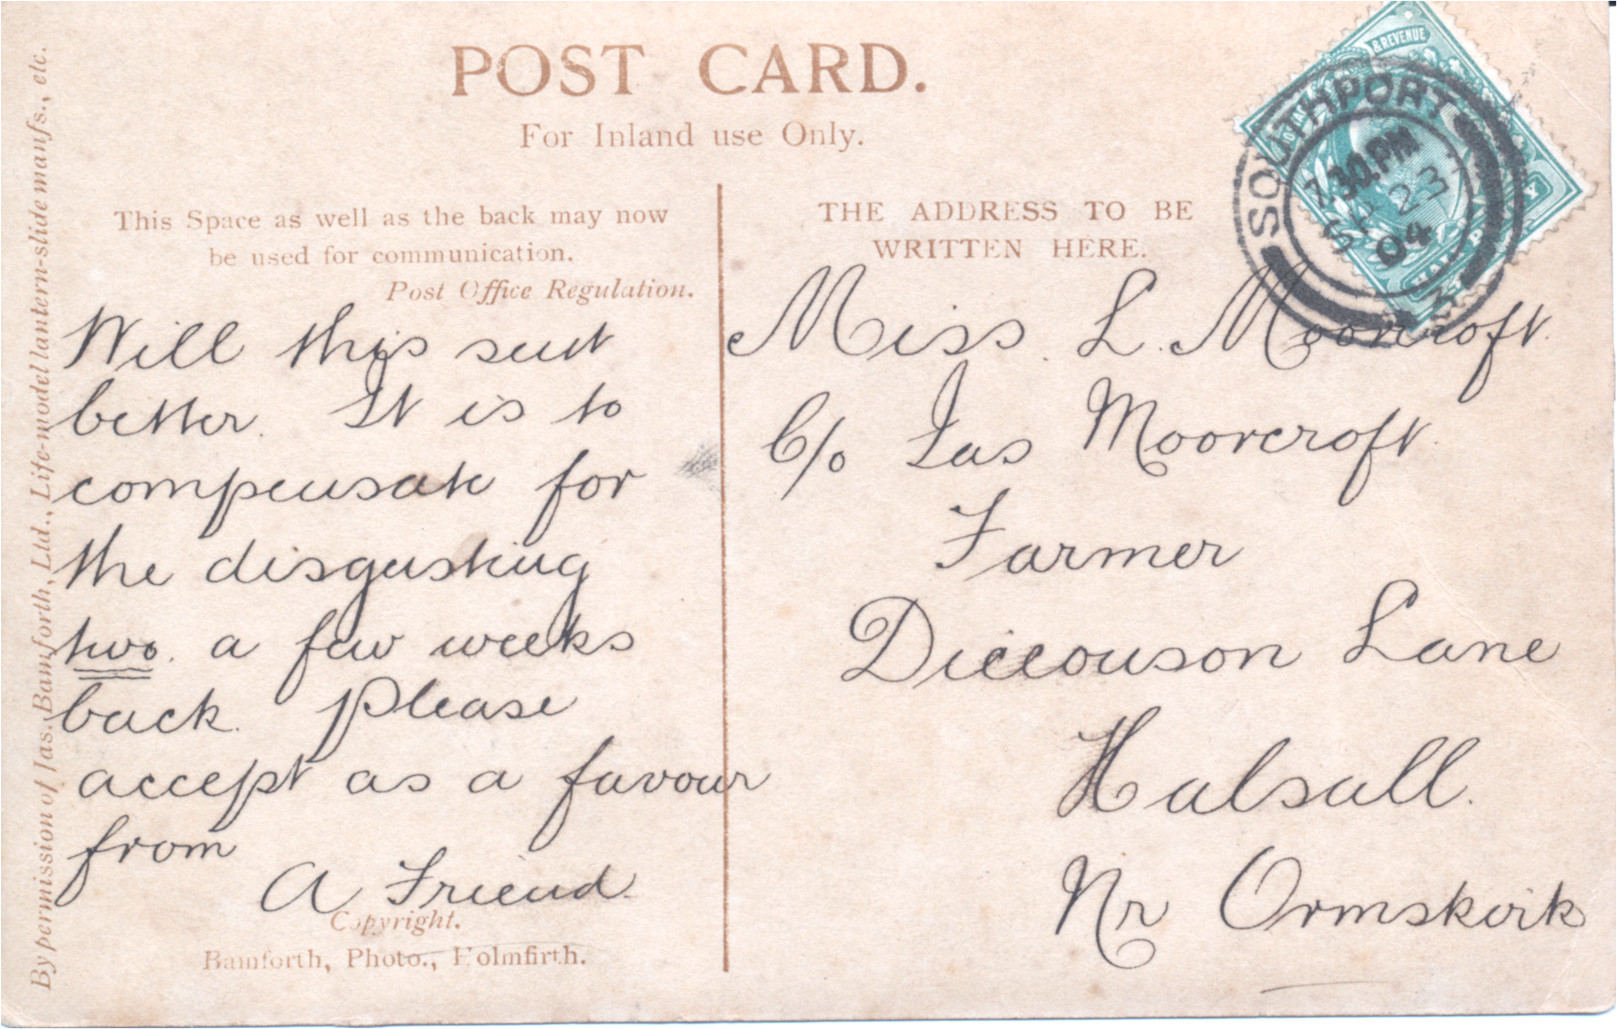 POST CARD.
For Inland use Only.
This Space as well as the back may now
be used for communication.
Post Office Regulation.
Will this suit
better. It is to
compensate for
the disgusting
two. a few weeks
back. Please
accept as a favour
from
A Friend.
Copyright.
Bamforth, Photo., Holmfirth.
By permission of Jas. Bamforth, Ltd., Life-model lantern-slide manfs., etc.
THE ADDRESS TO BE
WRITTEN HERE.
Miss. L. Moorcroft.
C/o Jas Moorcroft.
Farmer
Diccouson Lane
Halsall.
Nr Ormskirk
& REVENUE
SOUTHPORT
7.30.PM
SP 23
04
3